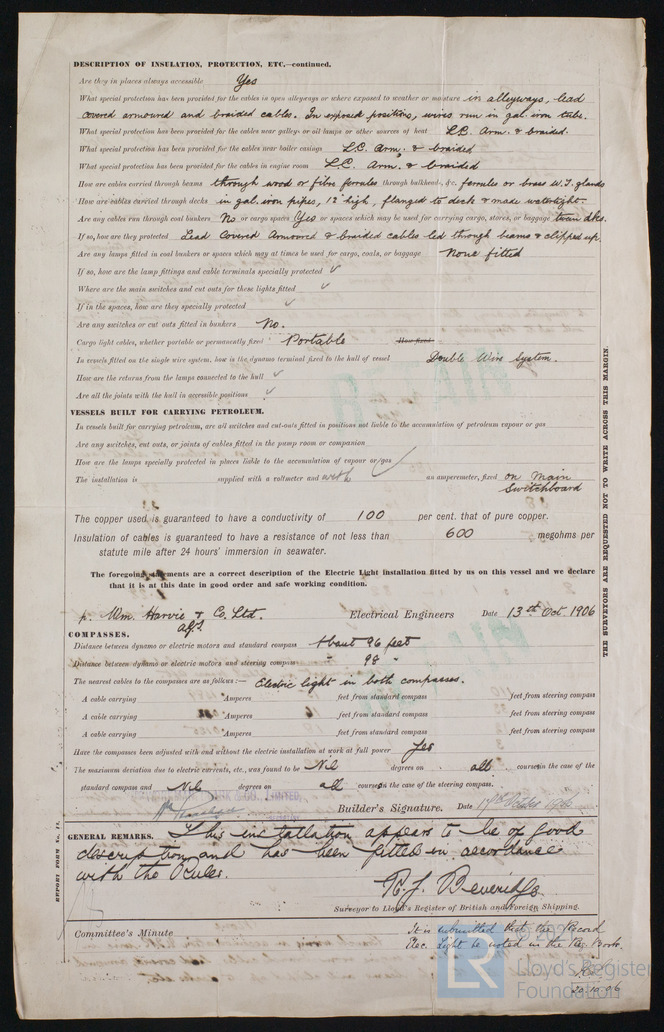 DESCRIPTION OF INSULATION, PROTECTION, ETC.—continued.
Are they in places always accessible Yes
What special protection has been provided for the cables in open alleyways or where exposed to weather or moisture in alleyways, lead
covered armoured and braided cables. In exposed positions, wires run in gal. iron tube.
What special protection has been provided for the cables near galleys or oil lamps or other sources of heat L.C. Arm. & braided.
What special protection has been provided for the cables near boiler casings L.C. Arm. & braided
What special protection has been provided for the cables in engine room L.C. Arm. & braided
How are cables carried through beams through wood or fibre ferrules through bulkheads, &c. ferrules or brass W.T. glands
How are cables carried through decks in gal. iron pipes, 12" high, flanged to deck & made watertight.
Are any cables run through coal bunkers No or cargo spaces Yes or spaces which may be used for carrying cargo, stores, or baggage tween dks.
If so, how are they protected Lead Covered Armoured & braided cables led through beams & clipped up.
Are any lamps fitted in coal bunkers or spaces which may at times be used for cargo, coals, or baggage None fitted
If so, how are the lamp fittings and cable terminals specially protected ✓
Where are the main switches and cut outs for these lights fitted ✓
If in the spaces, how are they specially protected ✓
Are any switches or cut outs fitted in bunkers No.
Cargo light cables, whether portable or permanently fixed Portable How fixed
In vessels fitted on the single wire system, how is the dynamo terminal fixed to the hull of vessel Double Wire System.
How are the returns from the lamps connected to the hull ✓
Are all the joints with the hull in accessible positions ✓
VESSELS BUILT FOR CARRYING PETROLEUM.
In vessels built for carrying petroleum, are all switches and cut-outs fitted in positions not liable to the accumulation of petroleum vapour or gas
Are any switches, cut outs, or joints of cables fitted in the pump room or companion
How are the lamps specially protected in places liable to the accumulation of vapour or gas ✓
The installation is supplied with a voltmeter and with an amperemeter, fixed on Main
Switchboard
The copper used is guaranteed to have a conductivity of 100 per cent. that of pure copper.
Insulation of cables is guaranteed to have a resistance of not less than 600 megohms per
statute mile after 24 hours' immersion in seawater.
The foregoing statements are a correct description of the Electric Light installation fitted by us on this vessel and we declare
that it is at this date in good order and safe working condition.
p. Wm. Harvie & Co. Ltd. Electrical Engineers Date 13th Oct. 1906
COMPASSES.
Distance between dynamo or electric motors and standard compass About 96 feet
Distance between dynamo or electric motors and steering compass " 98 "
The nearest cables to the compasses are as follows:— Electric light in both compasses.
A cable carrying Amperes feet from standard compass feet from steering compass
A cable carrying Amperes feet from standard compass feet from steering compass
A cable carrying Amperes feet from standard compass feet from steering compass
Have the compasses been adjusted with and without the electric installation at work at full power Yes
The maximum deviation due to electric currents, etc., was found to be Nil degrees on all courses in the case of the
standard compass and Nil degrees on all courses in the case of the steering compass.
LIMITED,
Builder's Signature. Date
GENERAL REMARKS. This installation appears to be of good
description and has been fitted in accordance
with the Rules.
R. J. Beveridge
Surveyor to Lloyd's Register of British and Foreign Shipping.
Committee's Minute
It is submitted that the Record
Elec. Light be noted in the Reg. Book.
20.10.06
THE SURVEYORS ARE REQUESTED NOT TO WRITE ACROSS THIS MARGIN.
REPORT FORM No.
LR Lloyd's Register
Foundation